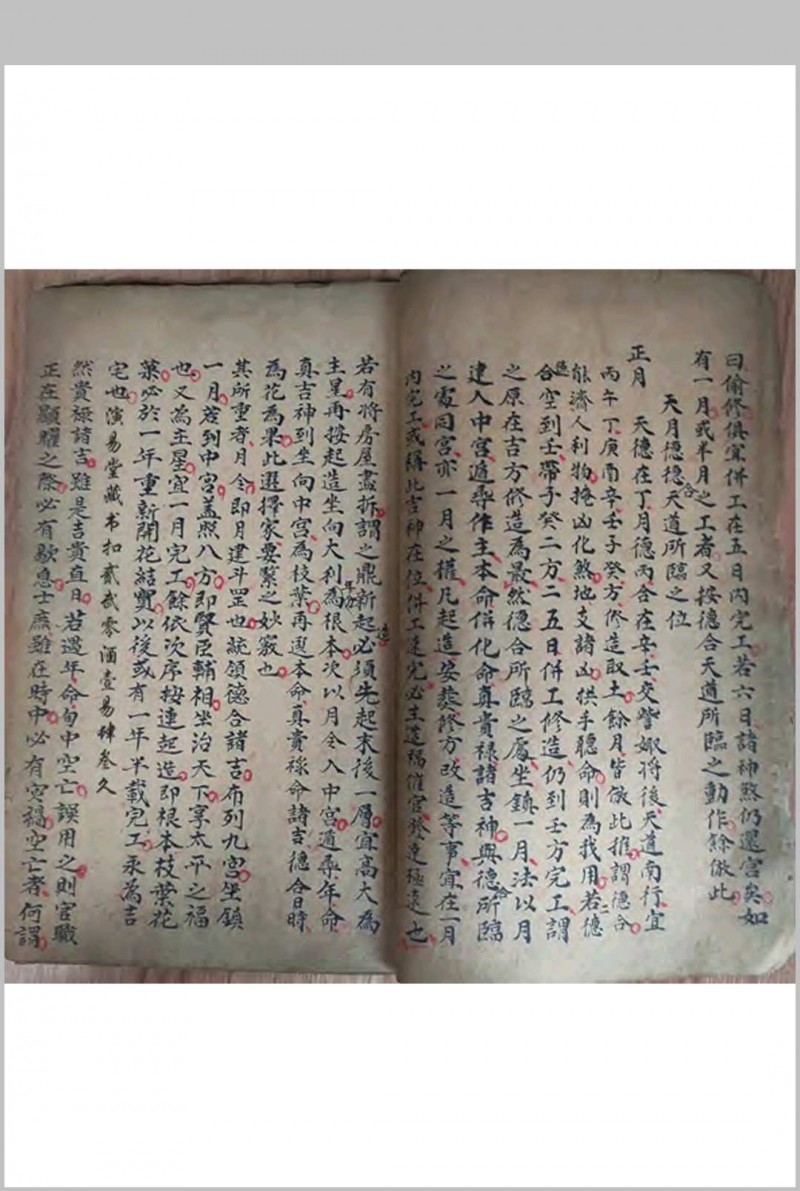 曰偷修俱宜併工在五日内完工若六日諸神煞仍還宮矣如
有一月或半月之工者又按德合天道所臨之動作餘倣此
天月德德合天道所臨之位
正月 天德在丁月德丙合在辛壬交訾娵將後天道南行宜
丙午丁庚酉辛壬子癸方修造取土餘月皆倣此推謂德合
能濟人利物掩凶化煞地支諸凶拱手聽命則為我用若德
合空到壬帶子癸二方二五日併工修造仍到壬方完工謂
之原在吉方修造為最然德合所臨之處坐鎮一月法以月
建入中宮遁尋作主本命併化命真貴祿諸吉神與德合所臨
之處同宮亦一月之權凡起造安葬修方改造等事宜在一月
内完工或稱此吉神在位併工速完必主造福催官發達極速也
若有將房屋盡拆謂之鼎新起造必須先起末後一層宜高大為
主星再按起造坐向大利為根本次以月令入中宮遁尋年命
真吉神到坐向中宮為枝葉再選本命真貴祿命諸吉德合日時
為花為果此選擇家要緊之妙竅也
其所重者月令即月建斗罡也統領德合諸吉布列九宮坐鎮
一月若到中宮盖照八方即賢臣輔相坐治天下享太平之福
也又為主星宜一月完工餘依次序按連起造即根本枝葉花
菓必於一年重新開花結實以後或有一年半載完工永為吉
宅也 演易堂藏书扣贰贰零酒壹易肆叁久
然貴祿諸吉雖是吉貴直日若遇年命旬中空亡誤用之則官職
正在顯耀之際必有歇息士庶雖在時中必有灾禍空亡者何謂